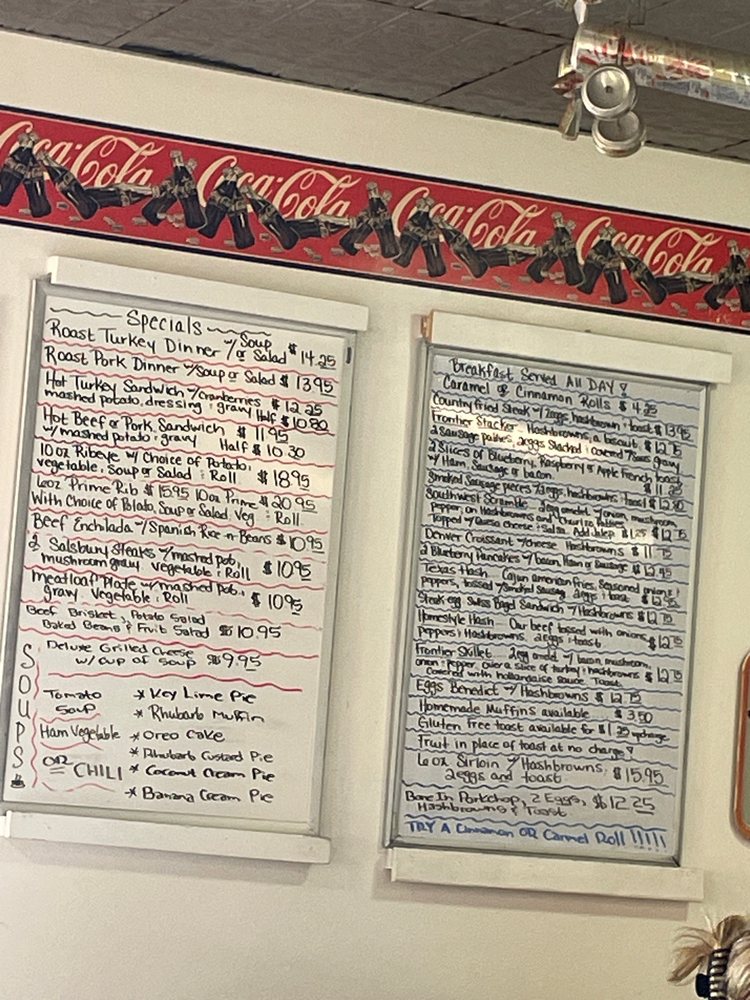 Coca-Cola Coca-Cola Coca-Cola Coca-Cola
Specials
Roast Turkey Dinner w/ Soup or Salad $14.25
Roast Pork Dinner w/Soup or Salad $13.95
Hot Turkey Sandwich w/cranberries $12.25
mashed potato, dressing & gravy Half $10.80
Hot Beef or Pork Sandwich $11.95
w/mashed potato & gravy Half $10.30
10oz Ribeye w/ Choice of Potato,
vegetable, Soup or Salad & Roll $18.95
6oz Prime Rib $15.95 10oz Prime $20.95
With Choice of Potato, Soup or Salad, Veg & Roll
Beef Enchilada w/Spanish Rice -n- Beans $10.95
2 Salsbury Steaks w/mashed pot,
mushroom gravy vegetable & Roll $10.95
Meatloaf Plate w/mashed pot,
gravy Vegetable & Roll $10.95
Beef Brisket, Potato Salad
Baked Beans & Fruit Salad $10.95
Deluxe Grilled Cheese
w/ cup of soup $9.95
SOUPS
Tomato
Soup
Ham Vegetable
OR
CHILI
* Key Lime Pie
* Rhubarb Muffin
* Oreo Cake
* Rhubarb Custard Pie
* Coconut Cream Pie
* Banana Cream Pie
Breakfast Served All DAY!
Caramel or Cinnamon Rolls $4.25
Country fried Steak w/ 2eggs, hashbrowns & toast $13.95
Frontier Stacker Hashbrowns, a biscuit,
2 Sausage patties, 2eggs Stacked & covered w/ Saus. gravy
2 Slices of Blueberry, Raspberry or Apple French toast
w/ Ham, Sausage or bacon. $11.25
Smoked Sausage pieces w/ 2eggs, hashbrowns & toast
Southwest Scramble 2egg omelet w/onion, mushroom,
pepper, on Hashbrowns and
Topped w/ Queso cheese & Salsa. Add Jalep
Denver Croissant w/cheese Hashbrowns $11.75
2 Blueberry Pancakes w/ bacon, Ham or Sausage $12.45
Texas Hash Cajun american fries, Seasoned onions &
peppers, tossed w/smoked sausage 2eggs & toast
Steak egg Swiss Bagel Sandwich w/Hashbrowns $12.75
Homestyle Hash Our beef tossed with onions,
peppers & Hashbrowns. 2eggs & toast $12.75
Frontier Skillet 2egg omelet w/ bacon, mushroom,
onion & pepper, over a slice of turkey & hashbrowns
Covered with hollandaise sauce Toast $12.75
Eggs Benedict w/ Hashbrowns $12.75
Homemade Muffins available $3.50
Gluten free toast available for $1.25 upcharge
Fruit in place of toast at no charge!
6oz Sirloin w/Hashbrowns,
2eggs and toast $15.95
Bone In Porkchop, 2 Eggs, $12.25
Hashbrowns & Toast
TRY A Cinnamon OR Carmel Roll !!!!!